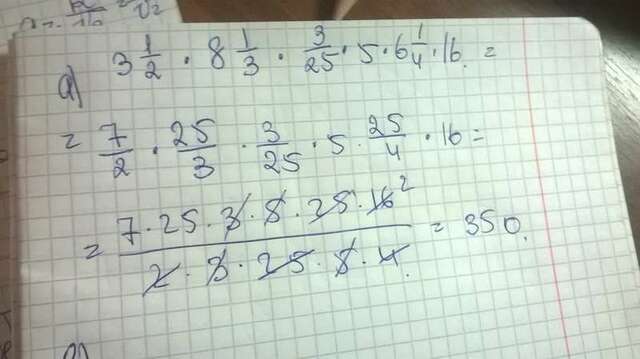 а) 3 1/2 · 8 1/3 · 3/25 · 5 · 6 1/4 · 16 =
= 7/2 · 25/3 · 3/25 · 5 · 25/4 · 16 =
= 7·25·3·5·25·16² / 2·3·25·5·4 = 350.